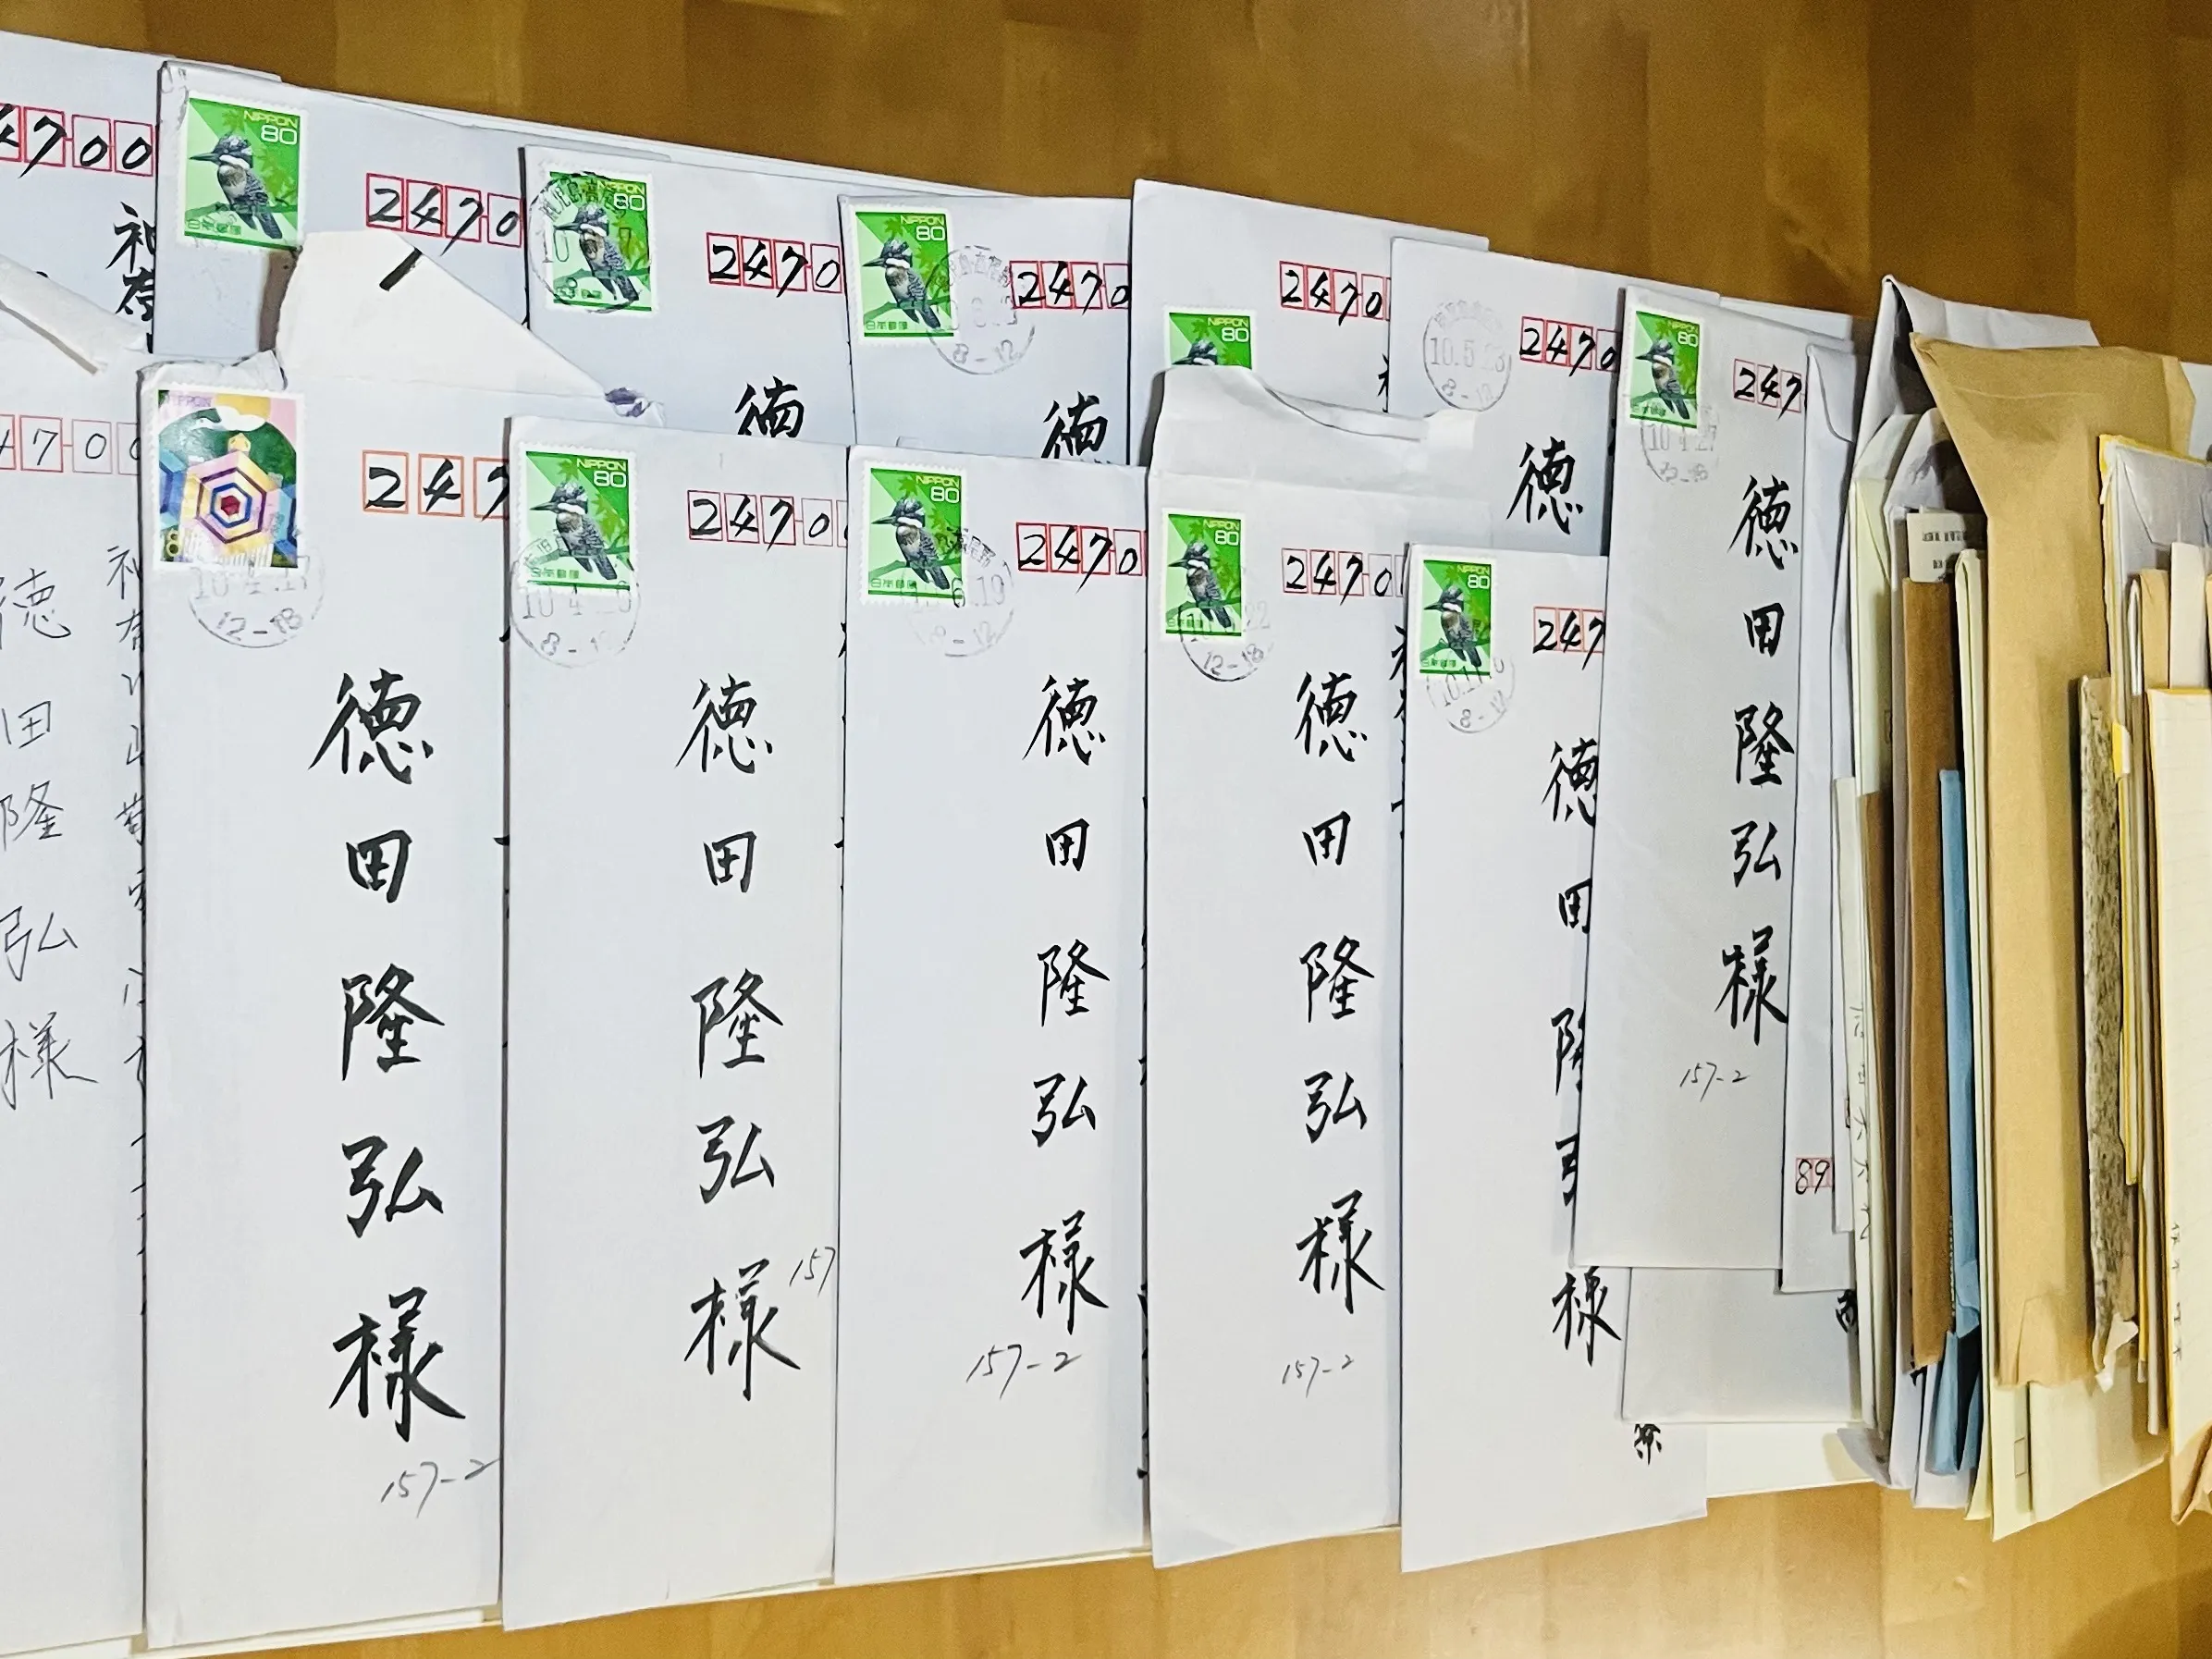 4700
NIPPON
80
日本郵便
2470
NIPPON
80
2470
徳
NIPPON
80
日本郵便
2470
徳
NIPPON
80
2470
10.5.23
8-12
2470
徳
80
10.4.27
12-18
247
徳田隆弘様
157-2
4700
徳田隆弘様
NIPPON
12-18
247
徳田隆弘様
157-2
NIPPON
80
日本郵便
2470
徳田隆弘様
157
NIPPON
80
日本郵便
6.19
8-12
2470
徳田隆弘様
157-2
NIPPON
80
12-18
2470
徳田隆弘様
157-2
NIPPON
80
日本郵便
8-12
247
徳田隆弘様
89